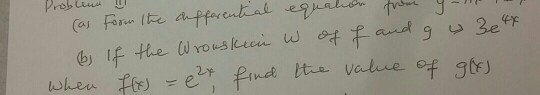 Problem 11
(a) Form the differential equation from y =
(b) If the Wronskein W of f and g is 3e^{4x}
when f(x) = e^{2x}, find the value of g(x)